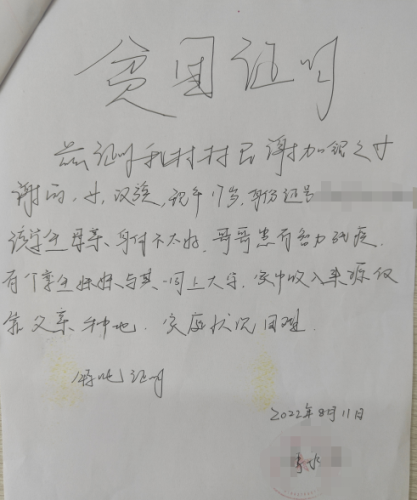 贫困证明
兹证明我村村民谢加银之女
谢雨，女，汉族，现年17岁，身份证号
该学生母亲身体不太好，哥哥患有智力残疾，
有个孪生妹妹与其一同上大学，家中收入来源仅
靠父亲种地，家庭状况困难
特此证明
2022年8月11日